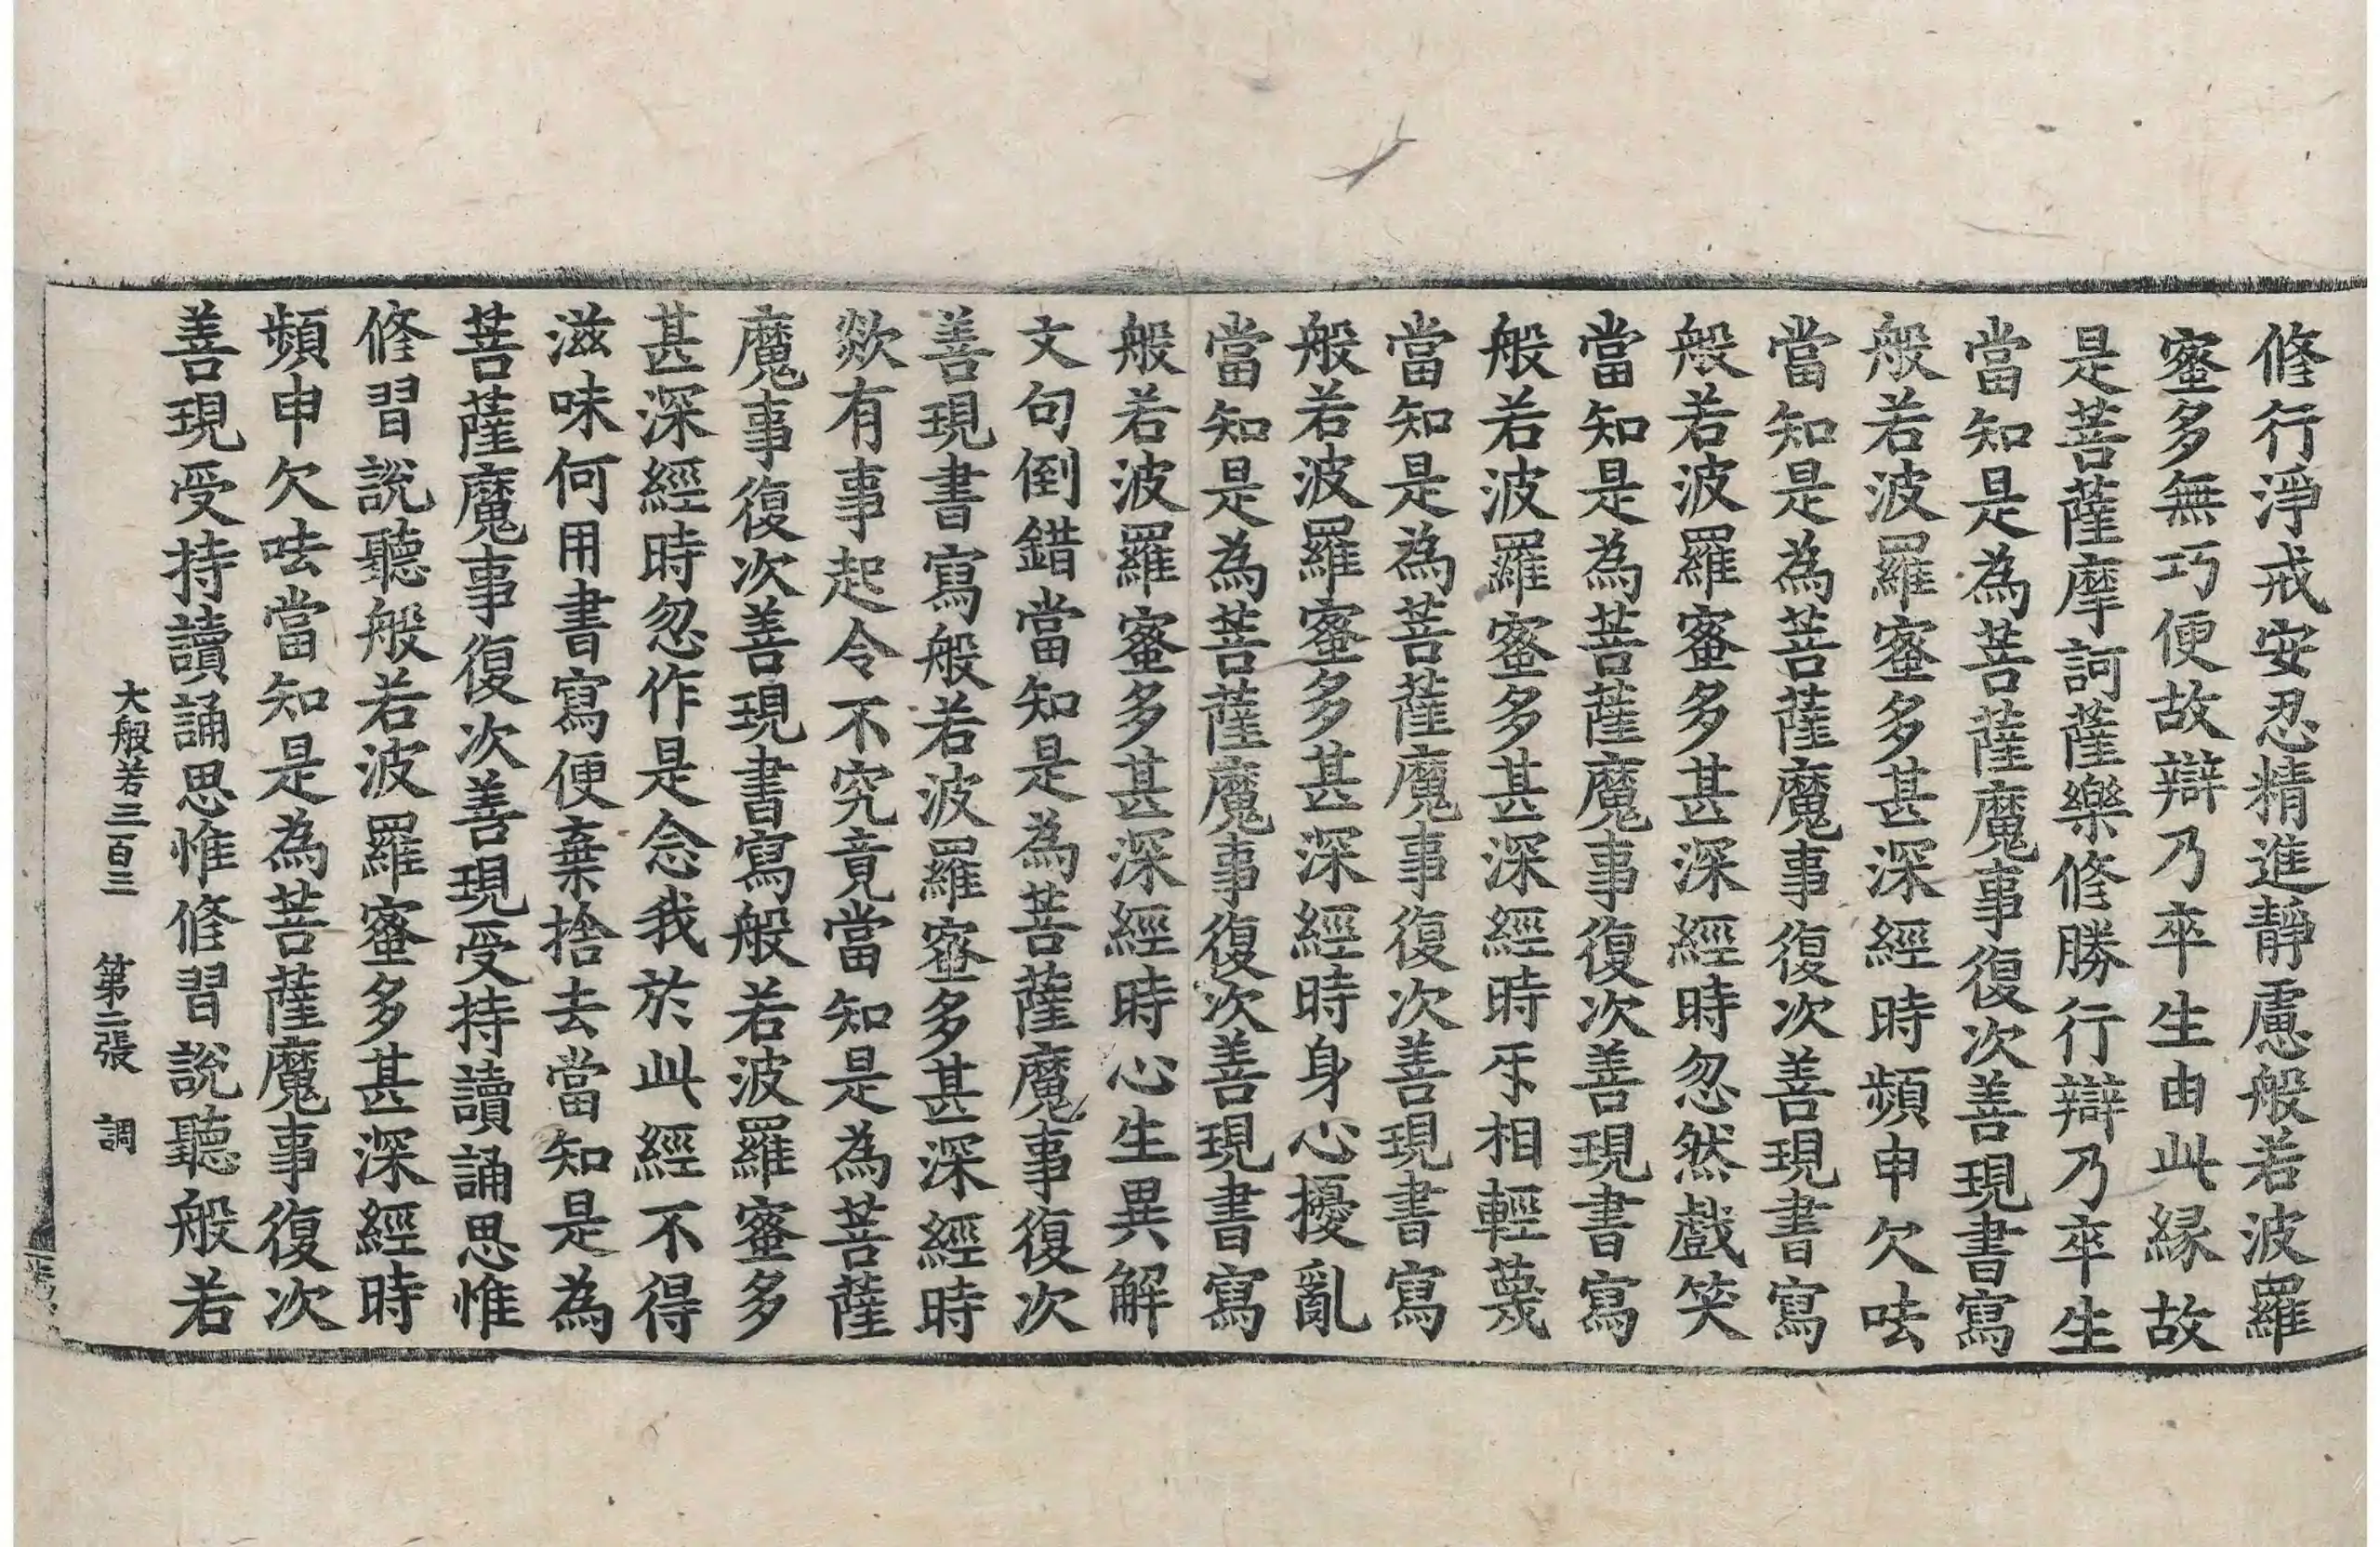 修行淨戒安忍精進靜慮般若波羅
蜜多無巧便故辯乃卒生由此縁故
是菩薩摩訶薩樂修勝行辯乃卒生
當知是為菩薩魔事復次善現書寫
般若波羅蜜多甚深經時頻申欠呿
當知是為菩薩魔事復次善現書寫
般若波羅蜜多甚深經時忽然戲笑
當知是為菩薩魔事復次善現書寫
般若波羅蜜多甚深經時乐相輕蔑
當知是為菩薩魔事復次善現書寫
般若波羅蜜多甚深經時身心擾亂
當知是為菩薩魔事復次善現書寫
般若波羅蜜多甚深經時心生異解
文句倒錯當知是為菩薩魔事復次
善現書寫般若波羅蜜多甚深經時
欻有事起令不究竟當知是為菩薩
魔事復次善現書寫般若波羅蜜多
甚深經時忽作是念我於此經不得
滋味何用書寫便棄捨去當知是為
菩薩魔事復次善現受持讀誦思惟
修習說聽般若波羅蜜多甚深經時
頻申欠呿當知是為菩薩魔事復次
善現受持讀誦思惟修習說聽般若
大般若三百三 第二張 調